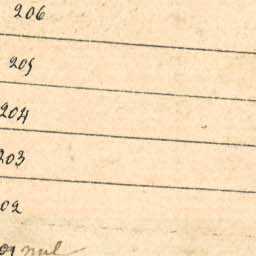 206
205
204
203
02
01 nul